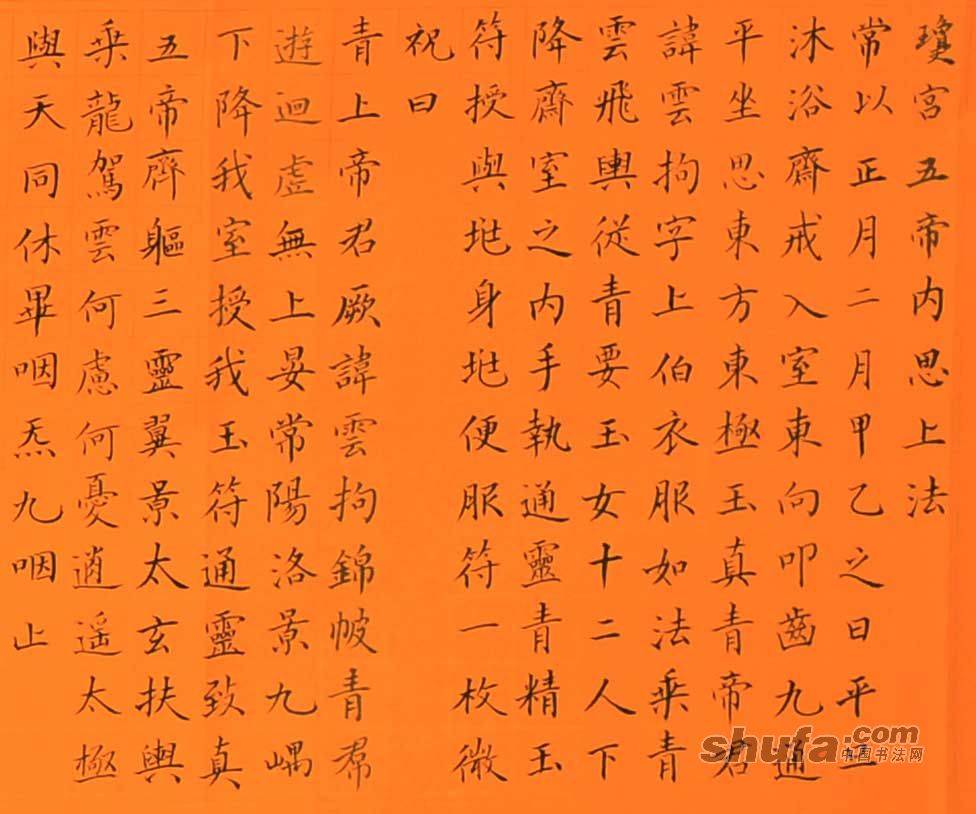 瓊宮五帝内思上法
常以正月二月甲乙之日平旦
沐浴齋戒入室東向叩齒九通
平坐思東方東極玉真青帝君
諱雲拘字上伯衣服如法乘青
雲飛輿從青要玉女十二人下
降齋室之内手執通靈青精玉
符授與垗身垗便服符一枚微
祝曰
青上帝君厥諱雲拘錦帔青帬
遊迴虛無上晏常陽洛景九嵎
下降我室授我玉符通靈致真
五帝齊軀三靈翼景太玄扶輿
乘龍駕雲何慮何憂逍遙太極
與天同休畢咽炁九咽止
shufa.com
中国书法网